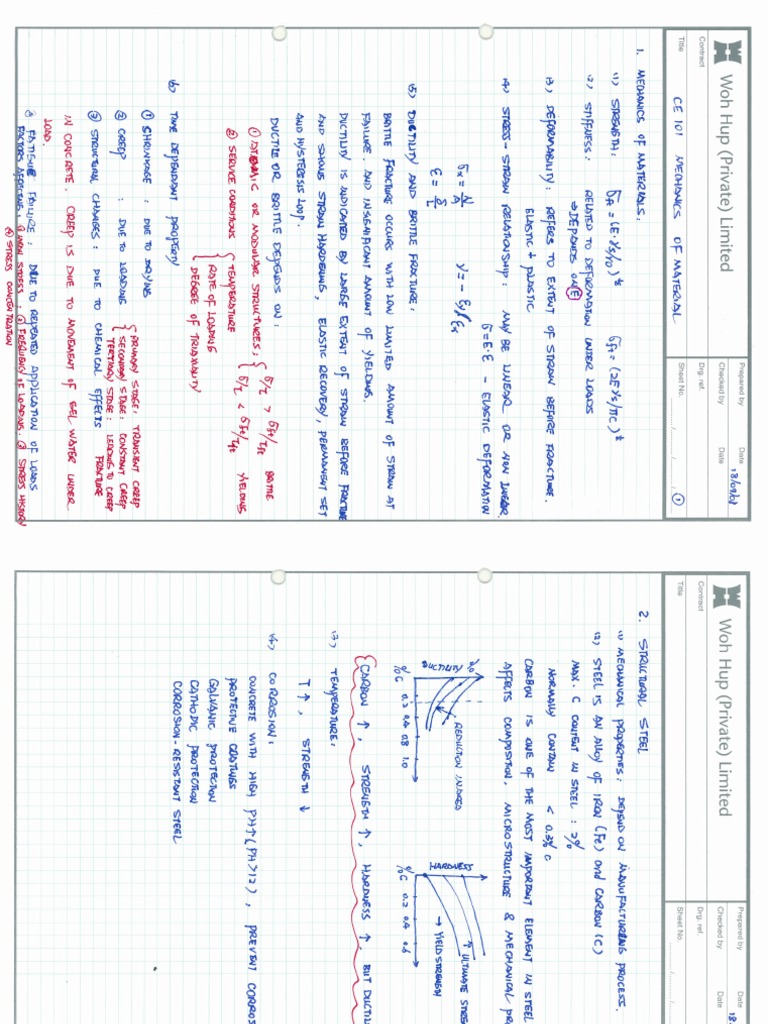 Woh Hup (Private) Limited
Contract
Title
CE 101 MECHANICS OF MATERIAL
Prepared by
Date
18/09/01
Checked by
Date
Drg. ref.
Sheet No.
1
1. MECHANICS OF MATERIALS:
(1) STRENGTH:
(2) STIFFNESS: RELATED TO DEFORMATION UNDER LOADS
⇒ DEPENDS ON E
(3) DEFORMABILITY: REFERS TO EXTENT OF STRAIN BEFORE FRACTURE.
ELASTIC + PLASTIC
(4) STRESS-STRAIN RELATIONSHIP: MAY BE LINEAR OR NON LINEAR.
σ = E·ε – ELASTIC DEFORMATION
σx = N/A
ν = - εy/εx
ε = δ/L
(5) DUCTILITY AND BRITTLE FRACTURE:
BRITTLE FRACTURE OCCURS WITH LOW LIMITED AMOUNT OF STRAIN AT
FAILURE. AND INSIGNIFICANT AMOUNT OF YIELDING.
DUCTILITY IS INDICATED BY LARGE EXTENT OF STRAIN BEFORE FRACTURE
AND SHOWS STRAIN HARDENING, ELASTIC RECOVERY, PERMANENT SET
AND HYSTERESIS LOOP.
DUCTILE OR BRITTLE DEPENDS ON:
① OR MODULAR STRUCTURES; BRITTLE
YIELDING
② SERVICE CONDITIONS { TEMPERATURE
RATE OF LOADING
DEGREE OF TRIAXIALITY
(6) TIME DEPENDANT PROPERTY
① SHRINKAGE: DUE TO DRYING
② CREEP : DUE TO LOADING { PRIMARY STAGE: TRANSIENT CREEP
SECONDARY STAGE: CONSTANT CREEP
TERTIARY STAGE: LEADING TO CREEP FRACTURE
③ STRUCTURAL CHANGES: DUE TO CHEMICAL EFFECTS
IN CONCRETE. CREEP IS DUE TO MOVEMENT OF GEL WATER UNDER
LOAD.
FATIGUE FAILURE: DUE TO REPEATED APPLICATION OF LOADS
FACTORS AFFECTING: ① STRESS; ② FREQUENCY OF LOADING. ③ STRESS HISTORY
④ STRESS CONCENTRATION
Woh Hup (Private) Limited
Contract
Title
Prepared by
18.
Checked by
Date
Drg. ref.
Sheet No.
2. STRUCTURAL STEEL
(1) MECHANICAL PROPERTIES: DEPEND ON MANUFACTURING PROCESS.
(2) STEEL IS AN ALLOY OF IRON (Fe) and CARBON (C)
MAX. C CONTENT IN STEEL: 2%
NORMALLY CONTAIN < 0.3% C
CARBON IS ONE OF THE MOST IMPORTANT ELEMENT IN STEEL
AFFECTS COMPOSITION, MICROSTRUCTURE & MECHANICAL
DUCTILITY %
REDUCTION IN AREA
%C 0.2 0.4 0.8 1.0
HARDNESS
ULTIMATE
YIELD STRENGTH
%C 0.2 0.4 0.6
CARBON ↑, STRENGTH ↑, HARDNESS ↑, BUT
(3) TEMPERATURE:
T↑, STRENGTH ↓
(4) CORROSION:
CONCRETE WITH HIGH PH↑ (PH>12), PREVENT
PROTECTIVE COATINGS
GALVANIC PROTECTION
CATHODIC PROTECTION
CORROSION-RESISTANT STEEL